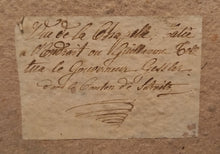 Vue de la Chapelle, batie
a l'Endroit ou Guillaume Tell
tua le Gouverneur Gessler
dans le Canton de Schwitz